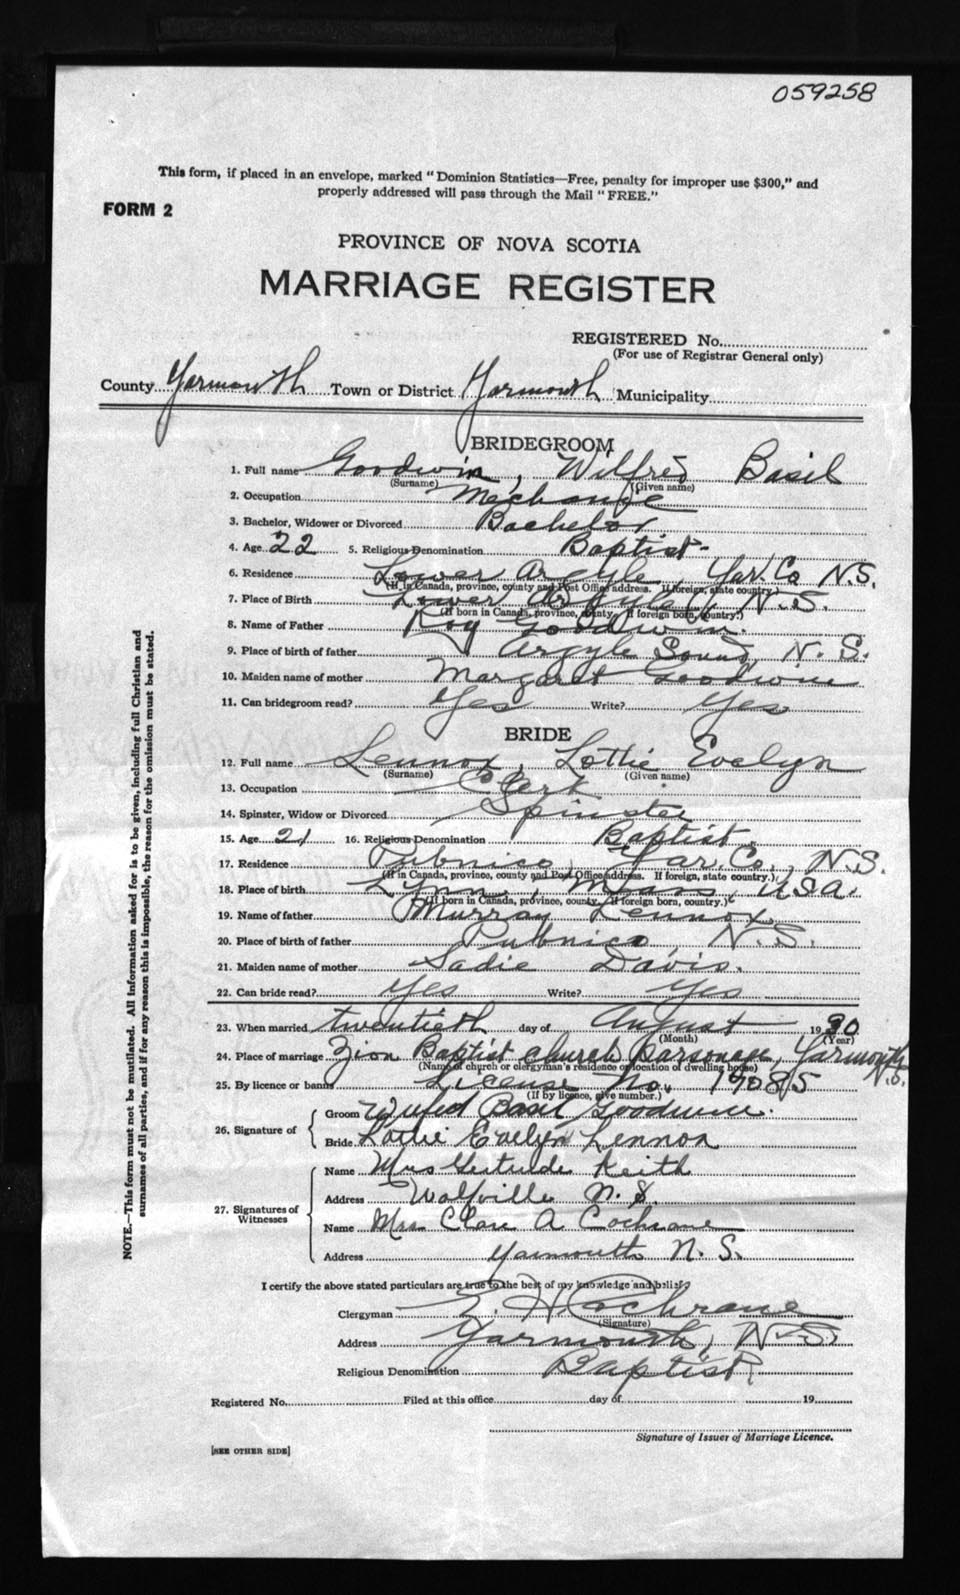 059258
This form, if placed in an envelope, marked "Dominion Statistics—Free, penalty for improper use $300," and
properly addressed will pass through the Mail "FREE."
FORM 2
PROVINCE OF NOVA SCOTIA
MARRIAGE REGISTER
REGISTERED No.
(For use of Registrar General only)
County Yarmouth Town or District Yarmouth Municipality
BRIDEGROOM
1. Full name Goodwin, Wilfred Basil
(Surname) (Given name)
2. Occupation Mechanic
3. Bachelor, Widower or Divorced Bachelor
4. Age 22 5. Religious Denomination Baptist
6. Residence Lower Argyle, Yar. Co N.S.
(If in Canada, province, county and Post Office address. If foreign, state country.)
7. Place of Birth Lower Argyle N.S.
(If born in Canada, province, county. If foreign born, country.)
8. Name of Father Roy Goodwin.
9. Place of birth of father Argyle Sound, N.S.
10. Maiden name of mother Margaret Goodwin
11. Can bridegroom read? Yes Write? Yes
BRIDE
12. Full name Lennox, Lottie Evelyn
(Surname) (Given name)
13. Occupation Clerk
14. Spinster, Widow or Divorced Spinster
15. Age 21 16. Religious Denomination Baptist
17. Residence Pubnico, Yar. Co., N.S.
(If in Canada, province, county and Post Office address. If foreign, state country.)
18. Place of birth Lynn, Mass, USA.
(If born in Canada, province, county. If foreign born, country.)
19. Name of father Murray Lennox
20. Place of birth of father Pubnico, N.S.
21. Maiden name of mother Sadie Davis.
22. Can bride read? Yes Write? Yes
23. When married twentieth day of August 1930
(Month) (Year)
24. Place of marriage Zion Baptist Church Parsonage, Yarmouth N.S.
(Name of church or clergyman's residence or location of dwelling house)
25. By licence or banns License No. 19085
(If by licence, give number.)
26. Signature of
Groom Wilfred Basil Goodwin.
Bride Lottie Evelyn Lennox
27. Signatures of Witnesses
Name Mrs Gertrude Keith
Address Wolfville N.S.
Name Mrs Clara A. Cochrane
Address Yarmouth N.S.
I certify the above stated particulars are true to the best of my knowledge and belief
Clergyman E. H. Cochrane
(Signature)
Address Yarmouth, N.S.
Religious Denomination Baptist
Registered No. Filed at this office day of 19
Signature of Issuer of Marriage Licence.
[SEE OTHER SIDE]
NOTE.—This form must not be mutilated. All information asked for is to be given, including full Christian and
surnames of all parties, and if for any reason this is impossible, the reason for the omission must be stated.